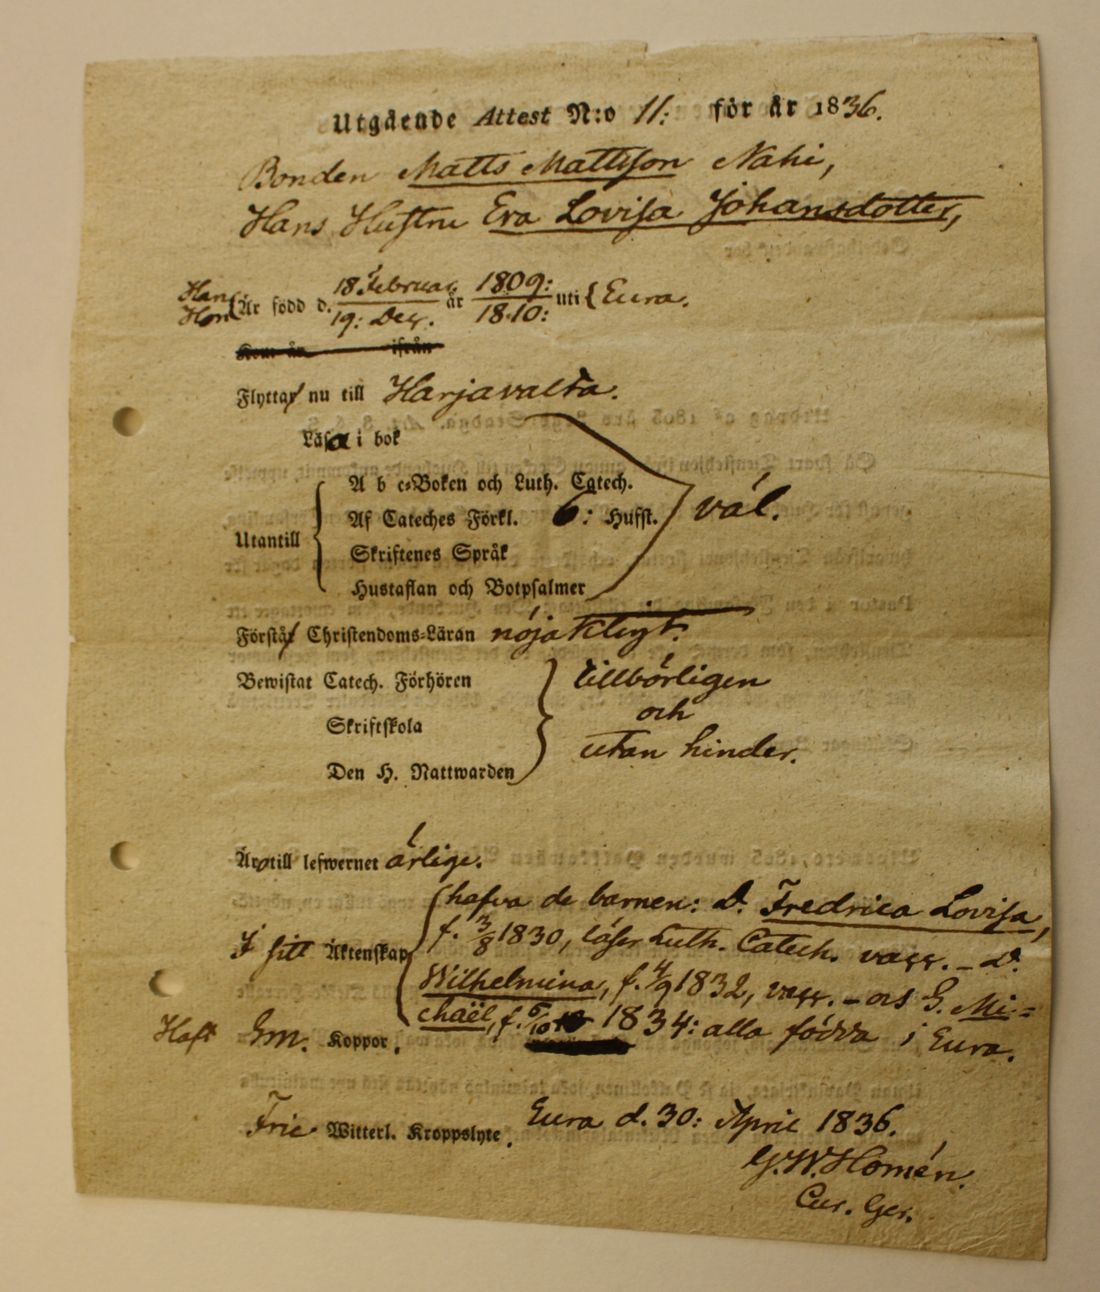 Utgående Attest N:o 11: för år 1836.
Bonden Matts Mattsson Nahi,
Hans Hustru Eva Lovisa Johansdotter,
Han Hon { Är född d. 18 Februar. 19: Dec. år 1809: 1810: uti { Eura.
Kom år ifrån
Flyttar nu till Harjavalta.
Läsa i bok
A b c-Boken och Luth. Catech.
Utantill { Af Cateches Förkl. 6: Hufst. väl.
Skriftenes Språk
Hustaflan och Botpsalmer
Förstår Christendoms-Läran nöjaktligt.
Bewistat Catech. Förhören tillbörligen
Skriftskola och
Den H. Nattwarden utan hinder.
Äro till lefwernet ärlige.
hafva de barnen: D. Fredrica Lovisa,
I sitt Äktenskap f. 3/8 1830, läser Luth. Catech. vacc. – D.
Wilhelmina, f. 4/9 1832, vacc. – och G. Mi=
chaël, f. 5/10 1834: alla födda i Eura.
Haft Gm. Koppor.
Frie Witterl. Kroppslyte. Eura d. 30: April 1836.
G. W. Homén.
Cur. Ger.